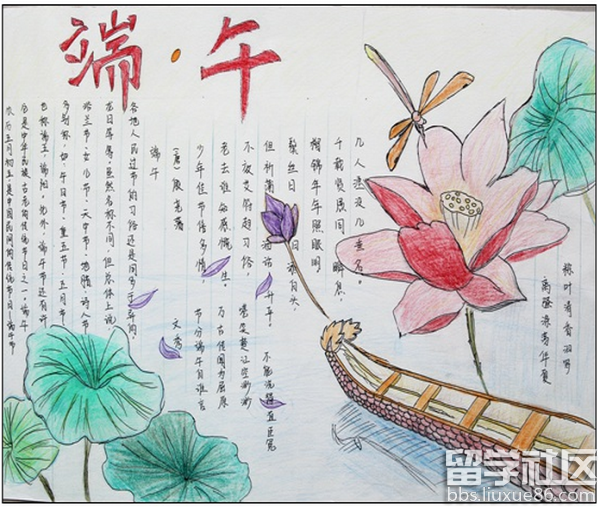 端·午
农历五月初五,是中国民间的传统节日—端午节
它是中华民族古老的传统节日之一。端午
也称端五,端阳。此外,端午节还有许
多别称,如:午日节、重五节、五月节、
浴兰节、女儿节、天中节、地腊、诗人节、
龙日等等。虽然名称不同,但总体上说,
各地人民过节的习俗还是同多于异的。
端午
(唐)殷尧藩
少年佳节倍多情,
老去谁知感慨生;
不效艾符趋习俗,
但祈蒲酒话升平。
鬓丝日日添白头,
榴锦年年照眼明;
千载贤愚同瞬息,
几人湮没几垂名。
文秀
节分端午自谁言
万古传闻为屈原
堪笑楚江空渺渺
不能洗得直臣冤
留学社区
bbs.liuxue86.com